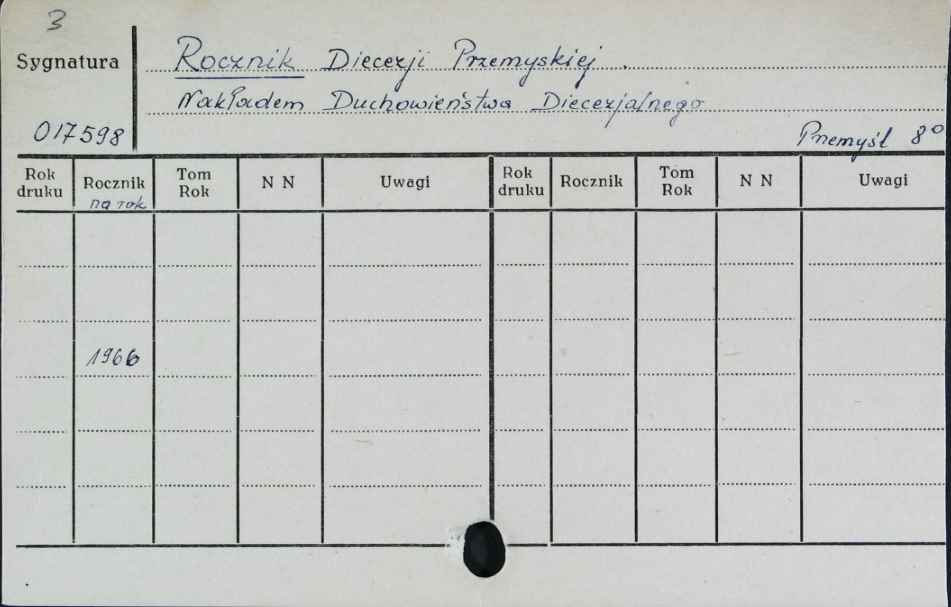 3
Sygnatura
Rocznik Diecezji Przemyskiej.
Nakładem Duchowieństwa Diecezjalnego
017598
Przemyśl 8°
Rok druku Rocznik na rok Tom Rok N N Uwagi Rok druku Rocznik Tom Rok N N Uwagi
1966